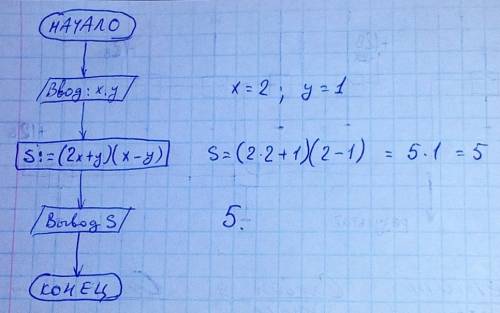 НАЧАЛО
Ввод: x.y x=2; y=1
S:=(2x+y)(x-y) S=(2·2+1)(2-1) = 5·1 = 5
Вывод S 5.
КОНЕЦ